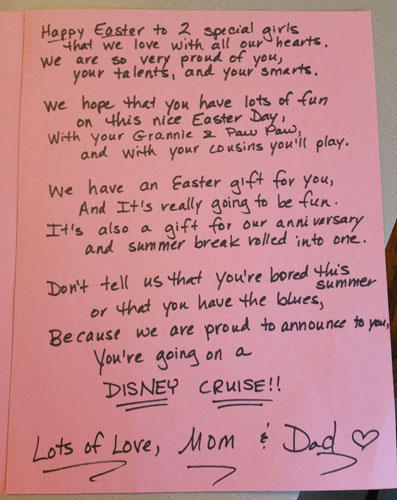 Happy Easter to 2 special girls
that we love with all our hearts.
We are so very proud of you,
your talents, and your smarts.
We hope that you have lots of fun
on this nice Easter Day,
With your Grannie & Paw Paw,
and with your cousins you'll play.
We have an Easter gift for you,
And It's really going to be fun.
It's also a gift for our anniversary
and summer break rolled into one.
Don't tell us that you're bored this summer
or that you have the blues,
Because we are proud to announce to you,
You're going on a
DISNEY CRUISE!!
Lots of Love, Mom & Dad ♡